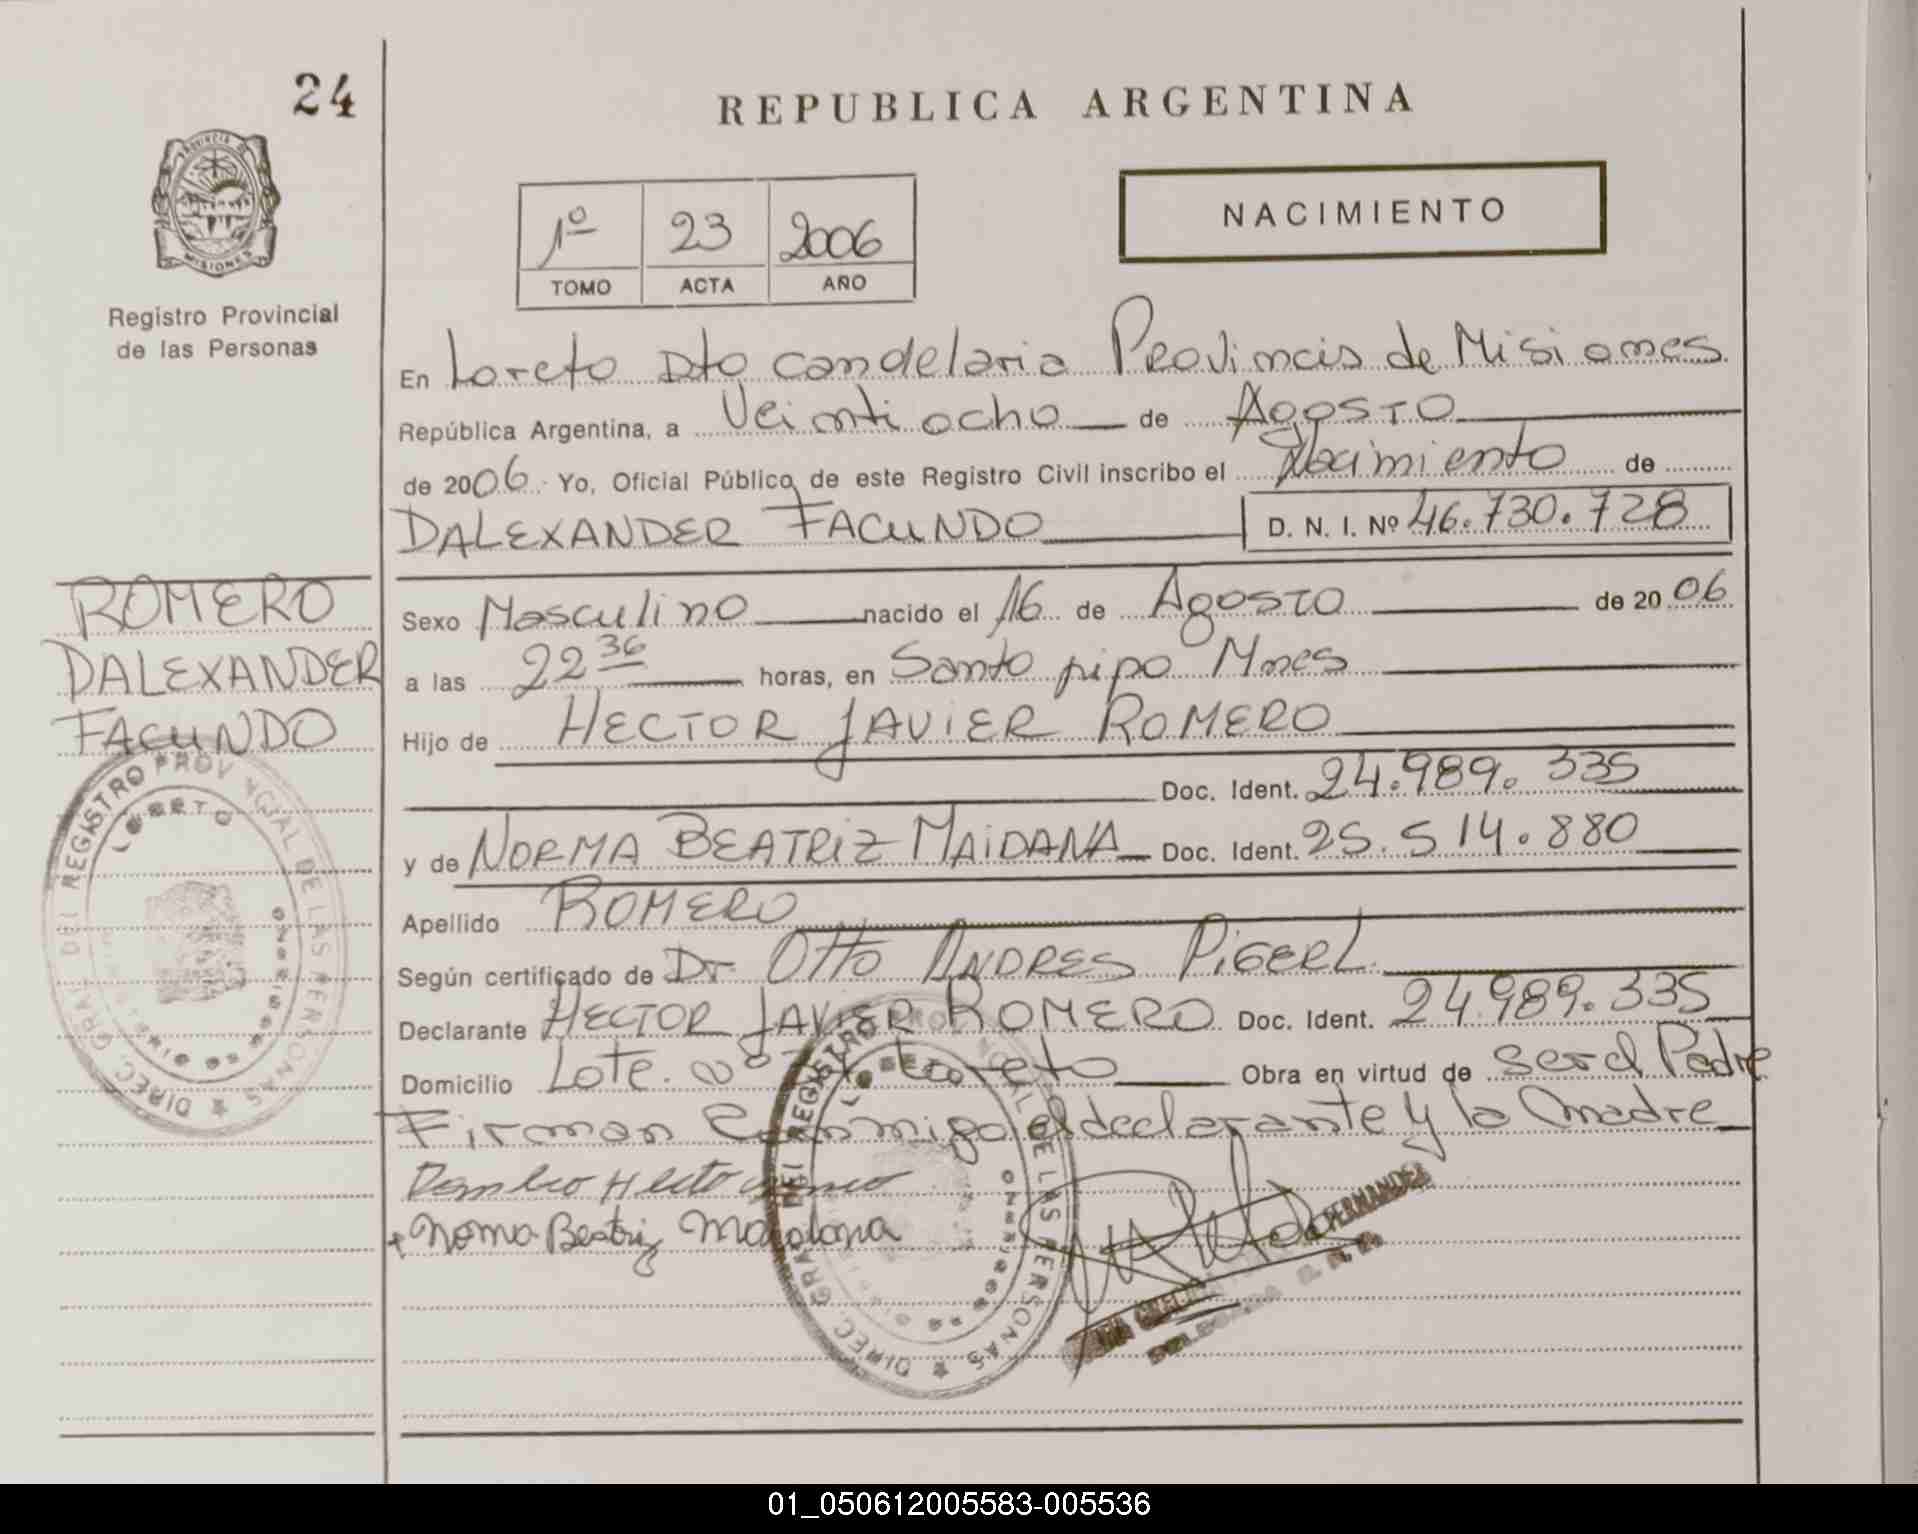 24
REPUBLICA ARGENTINA
PROVINCIA DE
MISIONES
Registro Provincial
de las Personas
1º 23 2006
TOMO ACTA AÑO
NACIMIENTO
En Loreto Dto candelaria Provincia de Misiones
República Argentina, a Veintiocho de Agosto
de 2006 Yo, Oficial Público de este Registro Civil inscribo el Nacimiento de
DALEXANDER FACUNDO D. N. I. Nº 46.730.728
ROMERO
DALEXANDER
FACUNDO
Sexo Masculino nacido el 16 de Agosto de 2006
a las 22 36 horas, en Santo pipo Mnes
Hijo de HECTOR JAVIER ROMERO
Doc. Ident. 24.989.335
y de NORMA BEATRIZ MAIDANA Doc. Ident. 25.514.880
Apellido ROMERO
Según certificado de Dr. Otto ANDRES PIGERL
Declarante HECTOR JAVIER ROMERO Doc. Ident. 24.989.335
Domicilio Lote. nº Loreto Obra en virtud de ser el Padre
Firman Conmigo el declarante y la madre
Norma Beatriz Maidana
DIREC. GRAL. DEL REGISTRO PROVINCIAL DE LAS PERSONAS
LORETO
DIREC. GRAL. DEL REGISTRO PROVINCIAL DE LAS PERSONAS
LORETO
FERNANDEZ
01_050612005583-005536